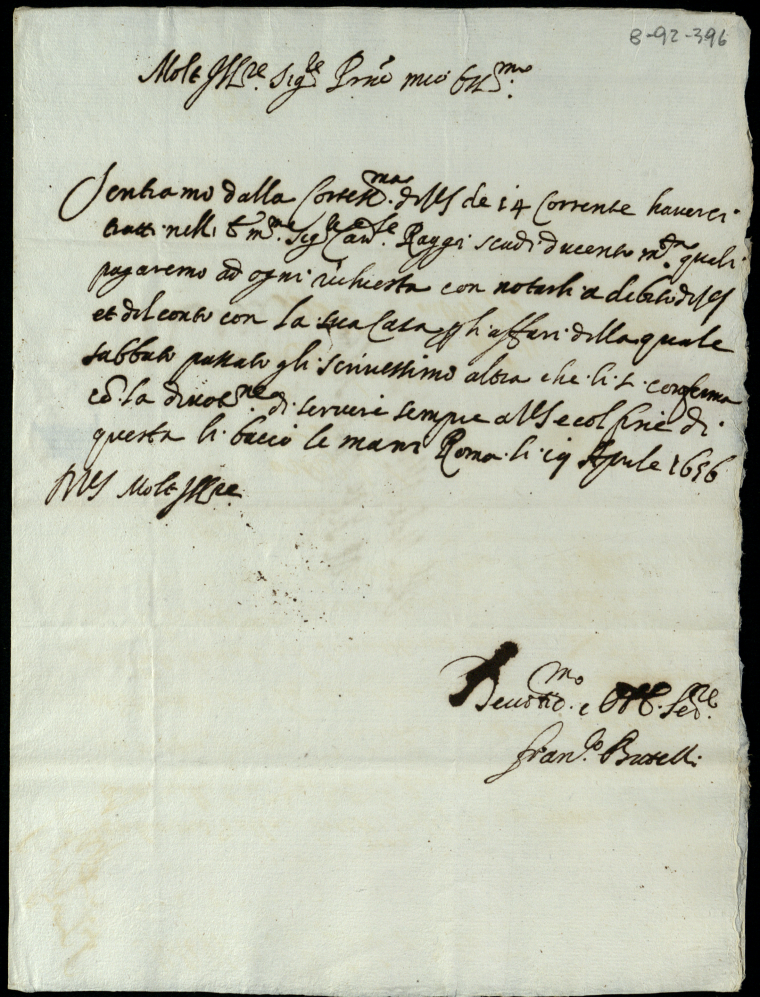 8-92-396
Molt Ill.re Sig.re P.rne mio oss.mo
Sentiamo dalla Cortess.ma di VS de 14 Corrente haverci
tratti nelli Sig.re Raggi scudi ducento m.ta quali
pagaremo ad ogni richiesta con notarli a debito di VS
et del conto con la sua Casa p gli affari della quale
sabbato passato gli scrivessimo altra che li si conferma
cō la divot.ne di servire sempre a VS e col fine di
questa li bacio le mani Roma li 19 Aprile 1656
Di VS Molt Ill.re
Devotis.mo e Obb. Ser.re
Fran.co